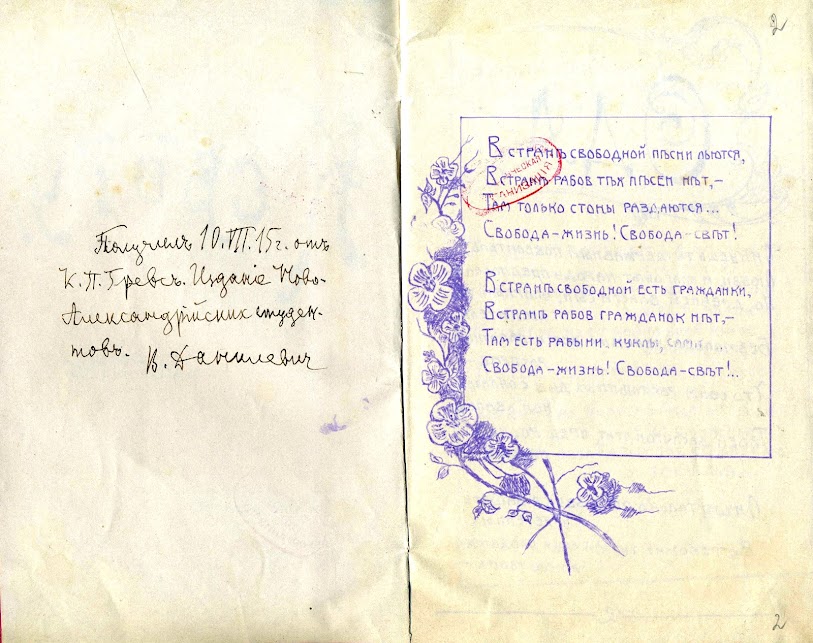 Получил 10.VII.15 г. отъ
К. П. Гревсъ. Изданіе Ново-
Александрійских студен-
товъ. В. Данилевич
2
В странѣ свободной пѣсни льются,
В странѣ рабов тѣх пѣсен нѣт,–
Там только стоны раздаются...
Свобода–жизнь! Свобода–свѣт!
В странѣ свободной есть гражданки,
В странѣ рабов гражданок нѣт,–
Там есть рабыни, куклы,
Свобода–жизнь! Свобода–свѣт!..
2